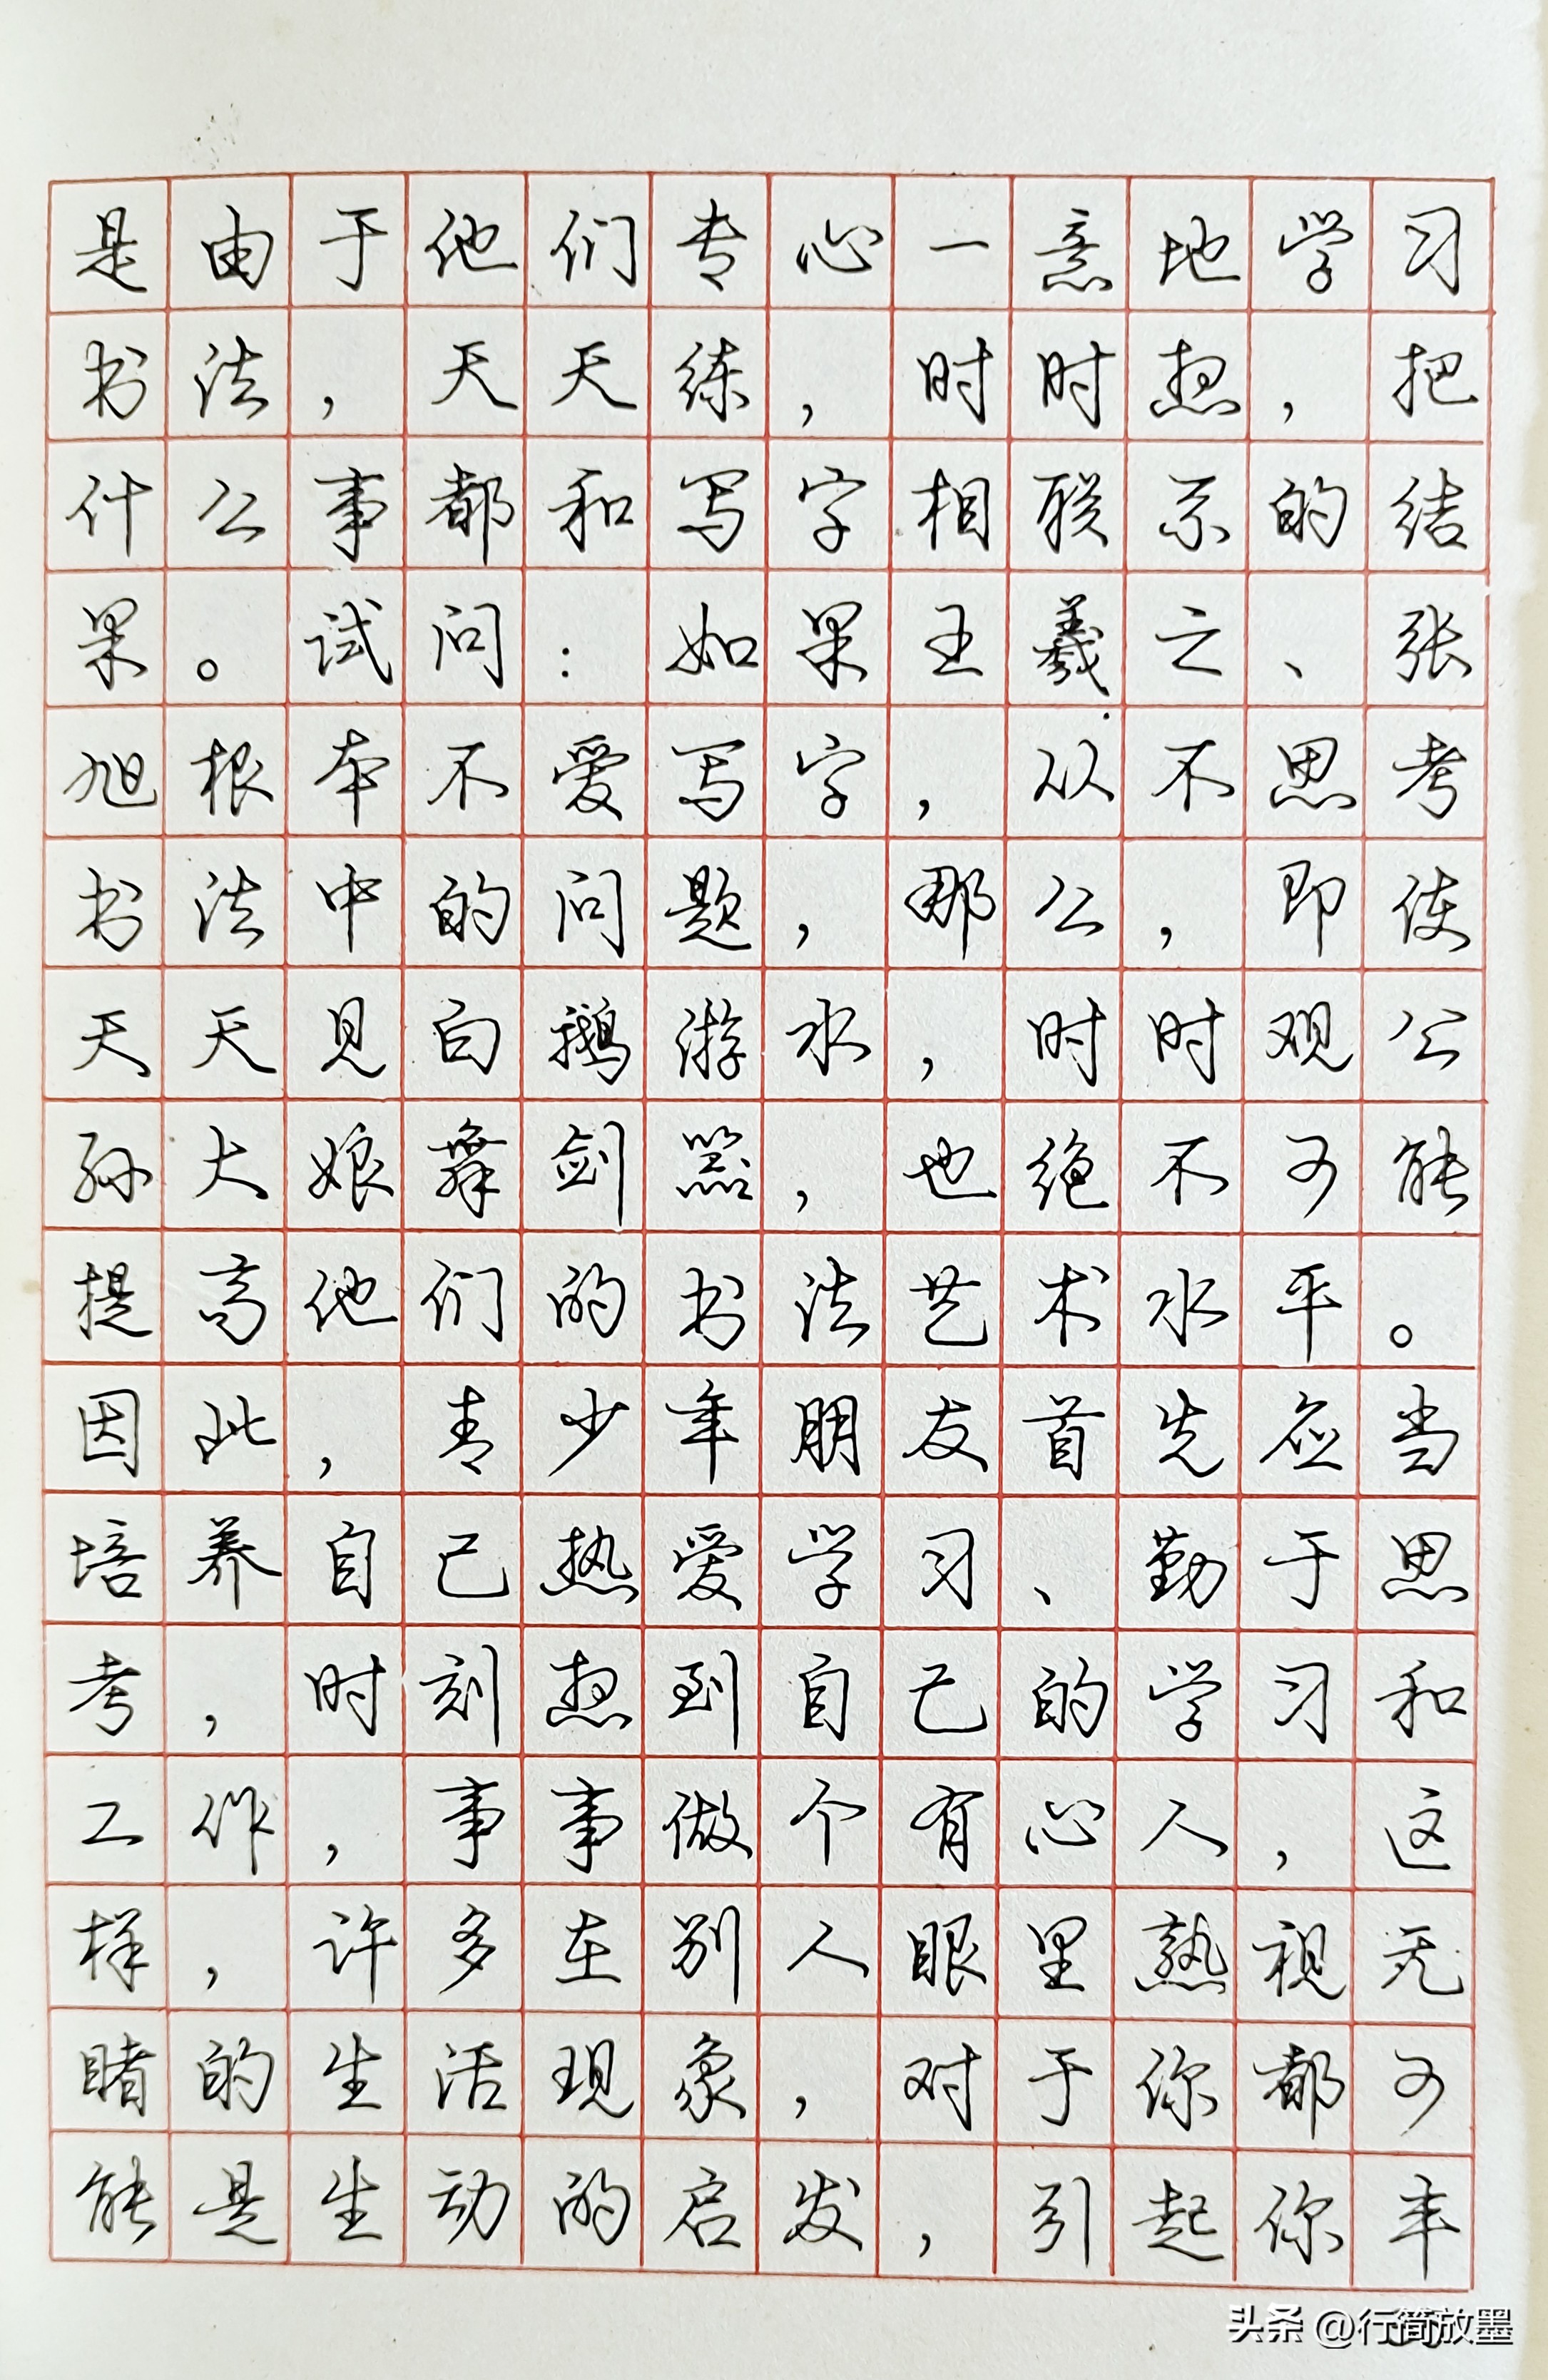 是由于他们专心一意地学习
书法，天天练，时时想，把
什么事都和写字相联系的结
果。试问：如果王羲之、张
旭根本不爱写字，从不思考
书法中的问题，那么，即使
天天见白鹅游水，时时观公
孙大娘舞剑器，也绝不可能
提高他们的书法艺术水平。
因此，青少年朋友首先应当
培养自己热爱学习、勤于思
考，时刻想到自己的学习和
工作，事事做个有心人，这
样，许多在别人眼里熟视无
睹的生活现象，对于你都可
能是生动的启发，引起你丰
头条 @行简放墨